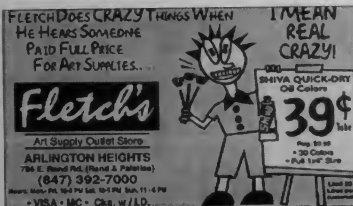 FLETCH DOES CRAZY THINGS WHEN
HE HEARS SOMEONE
PAID FULL PRICE
FOR ART SUPPLIES...
I MEAN
REAL
CRAZY!
Fletch's
Art Supply Outlet Store
ARLINGTON HEIGHTS
E. Rand Rd. (Rand & Palatine)
(847) 392-7000
• VISA • MC • Cks. w/ I.D.
SHIVA QUICK-DRY
Oil Colors
39¢
• 30 Colors
• Full Size